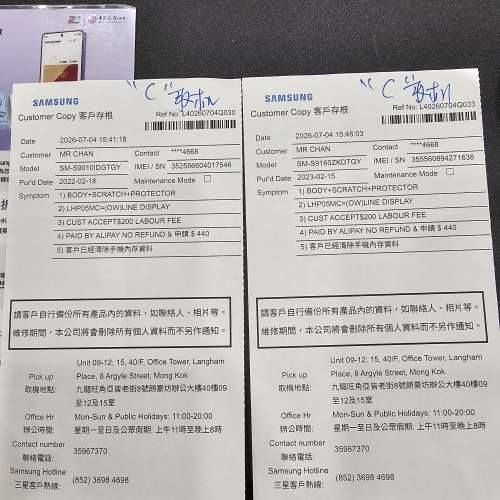 SAMSUNG
"C" 取机
Ref No: L40260704Q030
Customer Copy 客戶存根
Date 2026-07-04 15:41:18
Customer MR CHAN Contact ****4668
Model SM-S9010IDGTGY IMEI / SN 352556604017546
Pur'd Date 2022-02-18 Maintenance Mode
Symptom 1) BODY+SCRATCH+PROTECTOR
2) LHP05MC=(OW)LINE DISPLAY
3) CUST ACCEPT$200 LABOUR FEE
4) PAID BY ALIPAY NO REFUND & 申請 $ 440
5) 客戶已經清除手機內存資料
請客戶自行備份所有產品內的資料，如聯絡人、相片等。
維修期間，本公司將會刪除所有個人資料而不另作通知。
Unit 09-12; 15, 40/F, Office Tower, Langham
Pick up Place, 8 Argyle Street, Mong Kok
取機地點: 九龍旺角亞皆老街8號朗豪坊辦公大樓40樓09
至12及15室
Office Hr Mon-Sun & Public Holidays: 11:00-20:00
辦公時間: 星期一至日及公眾假期: 上午11時至晚上8時
Contact number
聯絡電話: 35967370
Samsung Hotline
三星客戶熱線: (852) 3698 4698
SAMSUNG
"C" 取机
Ref No: L40260704Q033
Customer Copy 客戶存根
Date 2026-07-04 15:48:03
Customer MR CHAN Contact ****4668
Model SM-S9160ZKDTGY IMEI / SN 355560894271638
Pur'd Date 2023-02-15 Maintenance Mode
Symptom 1) BODY+SCRATCH+PROTECTOR
2) LHP05MC=(OW)LINE DISPLAY
3) CUST ACCEPT$200 LABOUR FEE
4) PAID BY ALIPAY NO REFUND & 申請 $ 440
5) 客戶已經清除手機內存資料
請客戶自行備份所有產品內的資料，如聯絡人、相片等。
維修期間，本公司將會刪除所有個人資料而不另作通知。
Unit 09-12; 15, 40/F, Office Tower, Langham
Pick up Place, 8 Argyle Street, Mong Kok
取機地點: 九龍旺角亞皆老街8號朗豪坊辦公大樓40樓09
至12及15室
Office Hr Mon-Sun & Public Holidays: 11:00-20:00
辦公時間: 星期一至日及公眾假期: 上午11時至晚上8時
Contact number
聯絡電話: 35967370
Samsung Hotline
三星客戶熱線: (852) 3698 4698